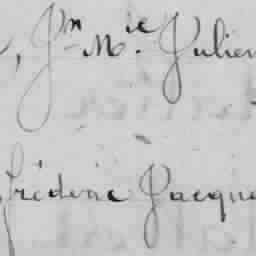 , Jn Mie Julien
Frédéric Jacque